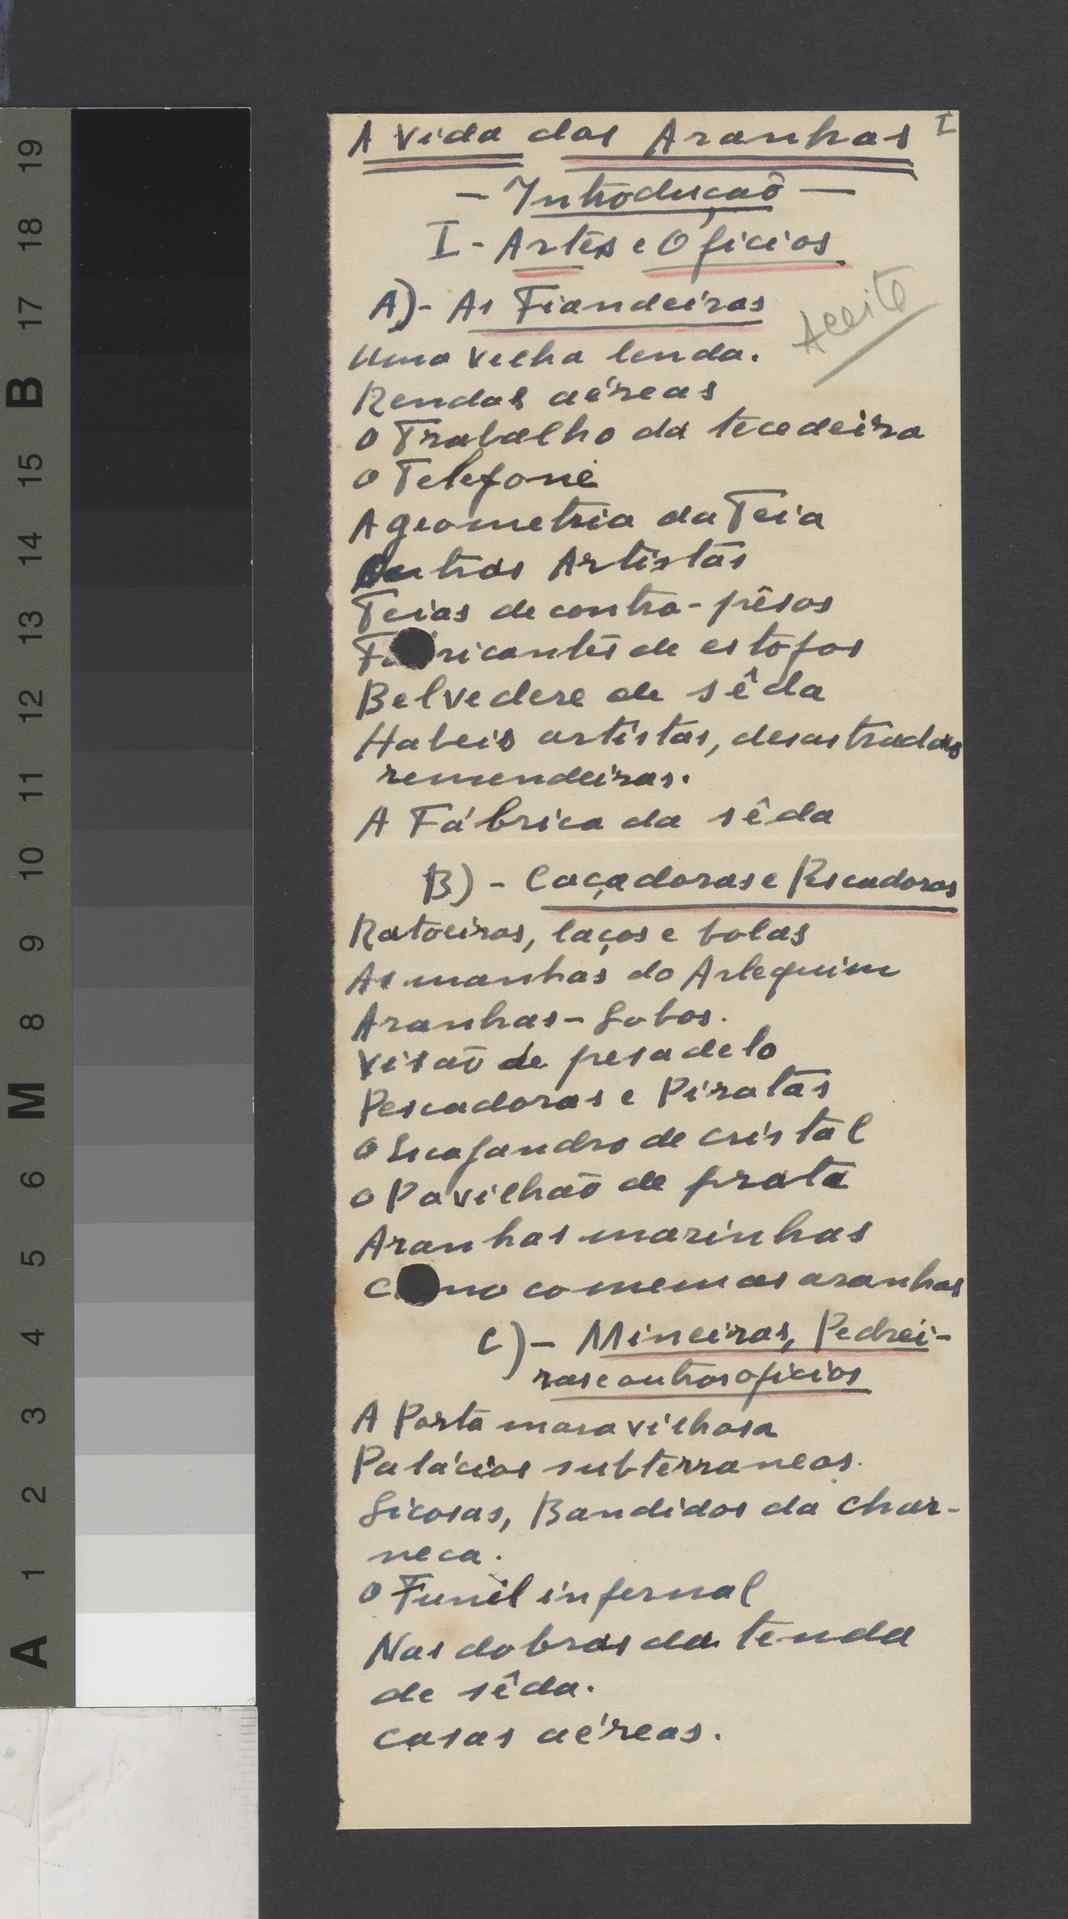 19
18
17
B
15
14
13
12
11
10
9
8
M
6
5
4
3
2
1
A
I
A Vida das Aranhas
- Introdução -
I - Artes e Ofícios
A) - As Fiandeiras
Aceite
Uma velha lenda.
Rendas aéreas
O Trabalho da tecedeira
O Telefone
A geometria da Teia
Outras Artistas
Teias de contra-pêsos
Fabricantes de estofos
Belvedere de sêda
Habeis artistas, desastradas
remendeiras.
A Fábrica da sêda
B) - Caçadoras e Pescadoras
Ratoeiras, laços e bolas
As manhas do Arlequim
Aranhas-Lobos.
Visão de pesadelo
Pescadoras e Piratas
O Escafandro de cristal
O Pavilhão de prata
Aranhas marinhas
Como comem as aranhas
C) - Mineiras, Pedrei-
ras e outros ofícios
A Porta maravilhosa
Palácios subterraneos.
Licosas, Bandidos da Char-
neca.
O Funil infernal
Nas dobras da tenda
de sêda.
Casas aéreas.